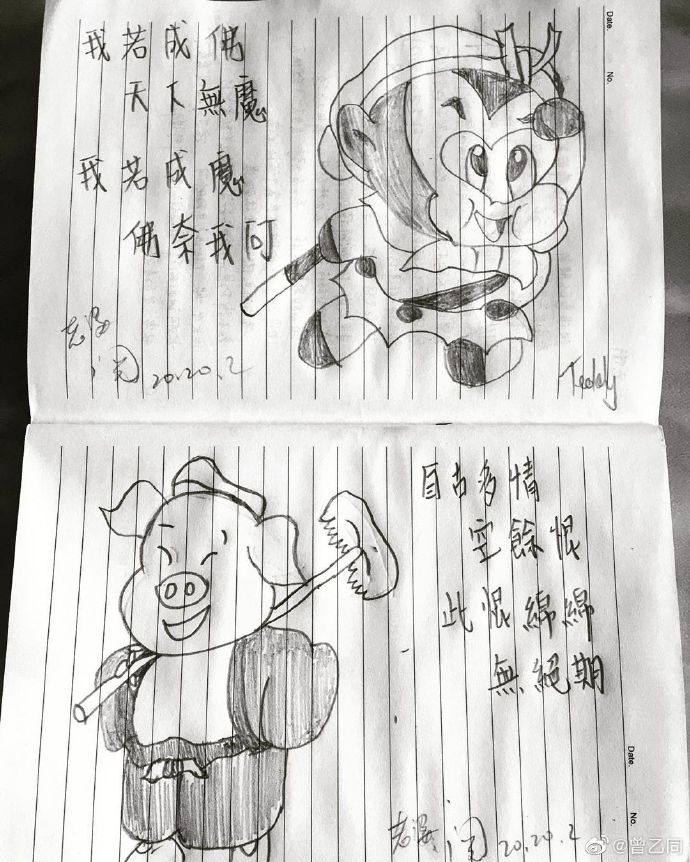 Date.
No.
我若成佛
天下無魔
我若成魔
佛奈我何
20.20.2
Teddy
自古多情
空餘恨
此恨綿綿
無絕期
20.20.2
Date.
No.
@曾乙同